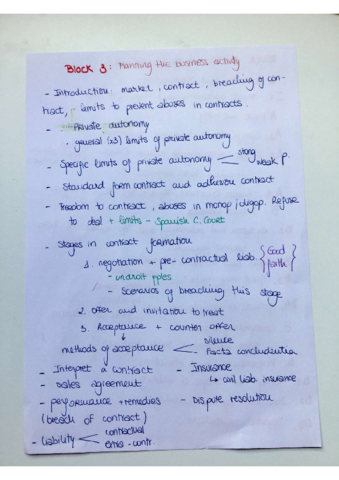 Block 3: Planning the business activity
- Introduction: market, contract, breaching of con-
tract, limits to prevent abuses in contracts.
- Private autonomy
. general (x3) limits of private autonomy
- Specific limits of private autonomy < strong
weak p.
- Standard form contract and adhesion contract
- Freedom to contract, abuses in monop/oligop. Refuse
to deal + limits - Spanish C. Court
- Stages in contract formation
1. negotiation + pre-contractual liab. {Good
faith}
- unidroit pples
- Scenarios of breaching this stage
2. offer and invitation to treat
3. Acceptance + counter offer
↓ silence
methods of acceptance < Facta concludentia
- Interpret a contract - Insurance
- sales agreement ↳ civil liab. insurance
- performance + remedies - Dispute resolution
(breach of contract)
- liability < contractual
extra-contr.